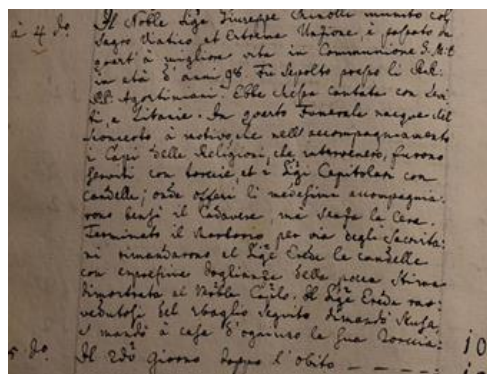 à 4 do. Il Noble Sigr. Giuseppe munito col
Sagro Viatico et Estrema Unzione, è passato da
quest' à miglior vita in Communione S.M.E
in età d'anni 98. Fù Sepolto presso li RR:
PP. Agostiniani. Ebbe Messa cantata con Levi
ti, e Litanie. In questo Funerale nacque del
sconcerto à motivo che nell'accompagnamento
i Capi delle Religioni, che intervenero, furono
serviti con torcie, et i Sigri Capitolari con
candelle; onde offesi li medesimi accompagna:
rono bensì il Cadavere, mà senza la Cera.
Terminato il per via degli Sacrista:
ni rimandarono al Sigr. Erede le candelle
con espressive doglianze della pocca stima
dimostrata al Noble Caplo. Il Sigr. Erede rav:
vedutosi del sbaglio seguito dimandò scusa,
e mandò à casa d'ogniuno la sua Torcia:
5 do. Il 2do. Giorno doppo l'obito 10